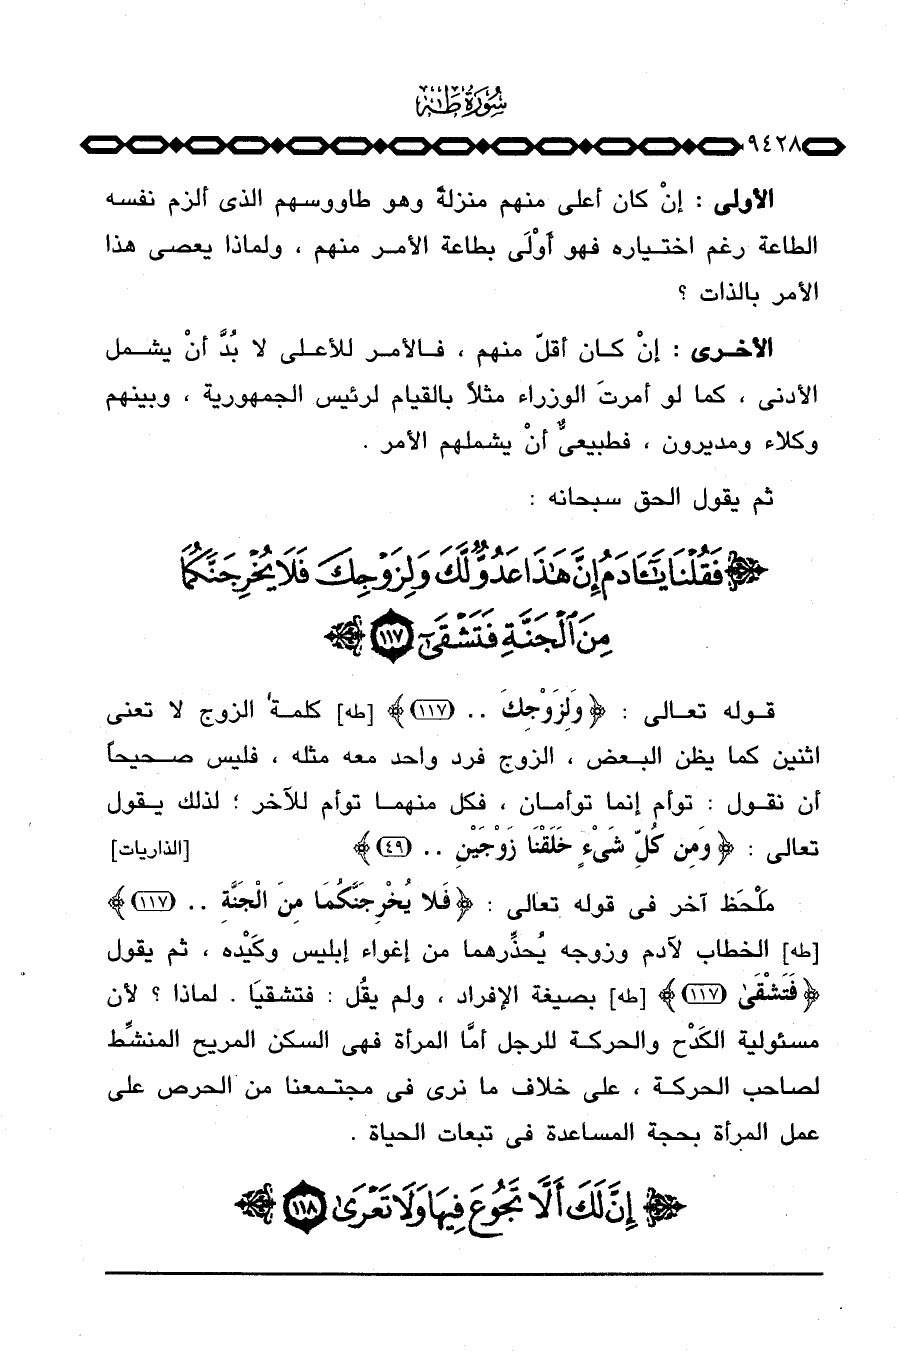 سُورَةُ طٰهٰ
٩٤٢٨
الأولى : إنْ كان أعلى منهم منزلةً وهو طاووسهم الذى ألزم نفسه
الطاعة رغم اختياره فهو أَوْلَى بطاعة الأمر منهم ، ولماذا يعصى هذا
الأمر بالذات ؟
الأخرى : إنْ كان أقلّ منهم ، فالأمر للأعلى لا بُدَّ أنْ يشمل
الأدنى ، كما لو أمرتَ الوزراء مثلاً بالقيام لرئيس الجمهورية ، وبينهم
وكلاء ومديرون ، فطبيعىٌّ أنْ يشملهم الأمر .
ثم يقول الحق سبحانه :
﴿ فَقُلْنَا يَٰٓـَٔادَمُ إِنَّ هَٰذَا عَدُوٌّ لَّكَ وَلِزَوْجِكَ فَلَا يُخْرِجَنَّكُمَا
مِنَ ٱلْجَنَّةِ فَتَشْقَىٰٓ ١١٧ ﴾
قوله تعالى : ﴿ وَلِزَوْجِكَ .. (١١٧) ﴾ [طه] كلمة الزوج لا تعنى
اثنين كما يظن البعض ، الزوج فرد واحد معه مثله ، فليس صحيحاً
أن نقول : توأم إنما توأمان ، فكل منهما توأم للآخر ؛ لذلك يقول
تعالى : ﴿ وَمِن كُلِّ شَىْءٍ خَلَقْنَا زَوْجَيْنِ .. (٤٩) ﴾ [الذاريات]
مَلْحَظ آخر فى قوله تعالى : ﴿ فَلا يُخْرِجَنَّكُمَا مِنَ الْجَنَّةِ .. (١١٧) ﴾
[طه] الخطاب لآدم وزوجه يُحذِّرهما من إغواء إبليس وكَيْده ، ثم يقول
﴿ فَتَشْقَىٰ (١١٧) ﴾ [طه] بصيغة الإفراد ، ولم يقُل : فتشقيَا . لماذا ؟ لأن
مسئولية الكَدْح والحركة للرجل أمَّا المرأة فهى السكن المريح المنشِّط
لصاحب الحركة ، على خلاف ما نرى فى مجتمعنا من الحرص على
عمل المرأة بحجة المساعدة فى تبعات الحياة .
﴿ إِنَّ لَكَ أَلَّا تَجُوعَ فِيهَا وَلَا تَعْرَىٰ ١١٨ ﴾